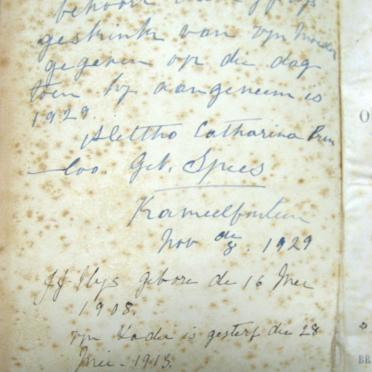 behoort
geskink van syn moeder
gegeven op die dag
toen hy aangeneem is
1929
Alettho Catharina Prins
loo. Geb. Spies
Kameelfontein
Nov de 8. 1929
JJ Uys gebore de 16 Mei
1908.
syn Vader is gesterf die 28
Mei. 1913.
O
BR